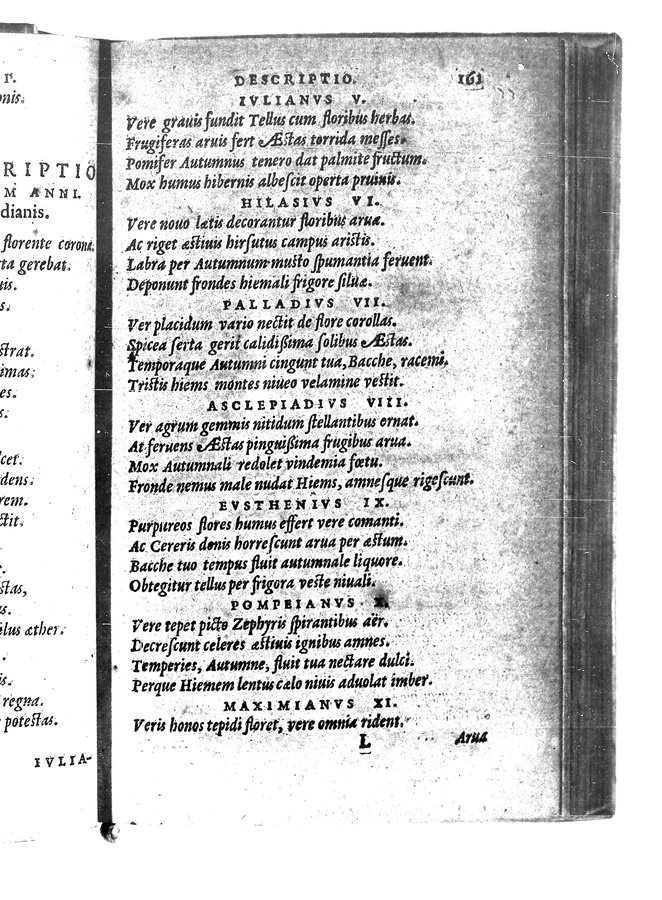 P.
nis.
RIPTIO
M ANNI.
dianis.
florente corona,
ta gerebat.
is.
s.
strat.
imas:
es.
s:
cet.
dens:
rem.
ctit.
stas,
s.
lus æther.
is.
regna.
potestas.
IVLIA-
DESCRIPTIO. 161
IVLIANVS V.
Vere grauis fundit Tellus cum floribus herbas.
Frugiferas aruis fert Æstas torrida messes.
Pomifer Autumnus tenero dat palmite fructum.
Mox humus hibernis albescit operta pruinis.
HILASIVS VI.
Vere nouo lætis decorantur floribus arua.
Ac riget æstiuis hirsutus campus aristis.
Labra per Autumnum musto spumantia feruent.
Deponunt frondes hiemali frigore siluæ.
PALLADIVS VII.
Ver placidum vario nectit de flore corollas.
Spicea serta gerit calidißima solibus Æstas.
Temporaque Autumni cingunt tua, Bacche, racemi.
Tristis hiems montes niueo velamine vestit.
ASCLEPIADIVS VIII.
Ver agrum gemmis nitidum stellantibus ornat.
At feruens Æstas pinguißima frugibus arua.
Mox Autumnali redolet vindemia fœtu.
Fronde nemus male nudat Hiems, amnesque rigescunt.
EVSTHENIVS IX.
Purpureos flores humus effert vere comanti.
Ac Cereris donis horrescunt arua per æstum.
Bacche tuo tempus fluit autumnale liquore.
Obtegitur tellus per frigora veste niuali.
POMPEIANVS X.
Vere tepet picto Zephyris spirantibus aër.
Decrescunt celeres æstiuis ignibus amnes.
Temperies, Autumne, fluit tua nectare dulci.
Perque Hiemem lentus cælo niuis aduolat imber.
MAXIMIANVS XI.
Veris honos tepidi floret, vere omnia rident.
L Arua